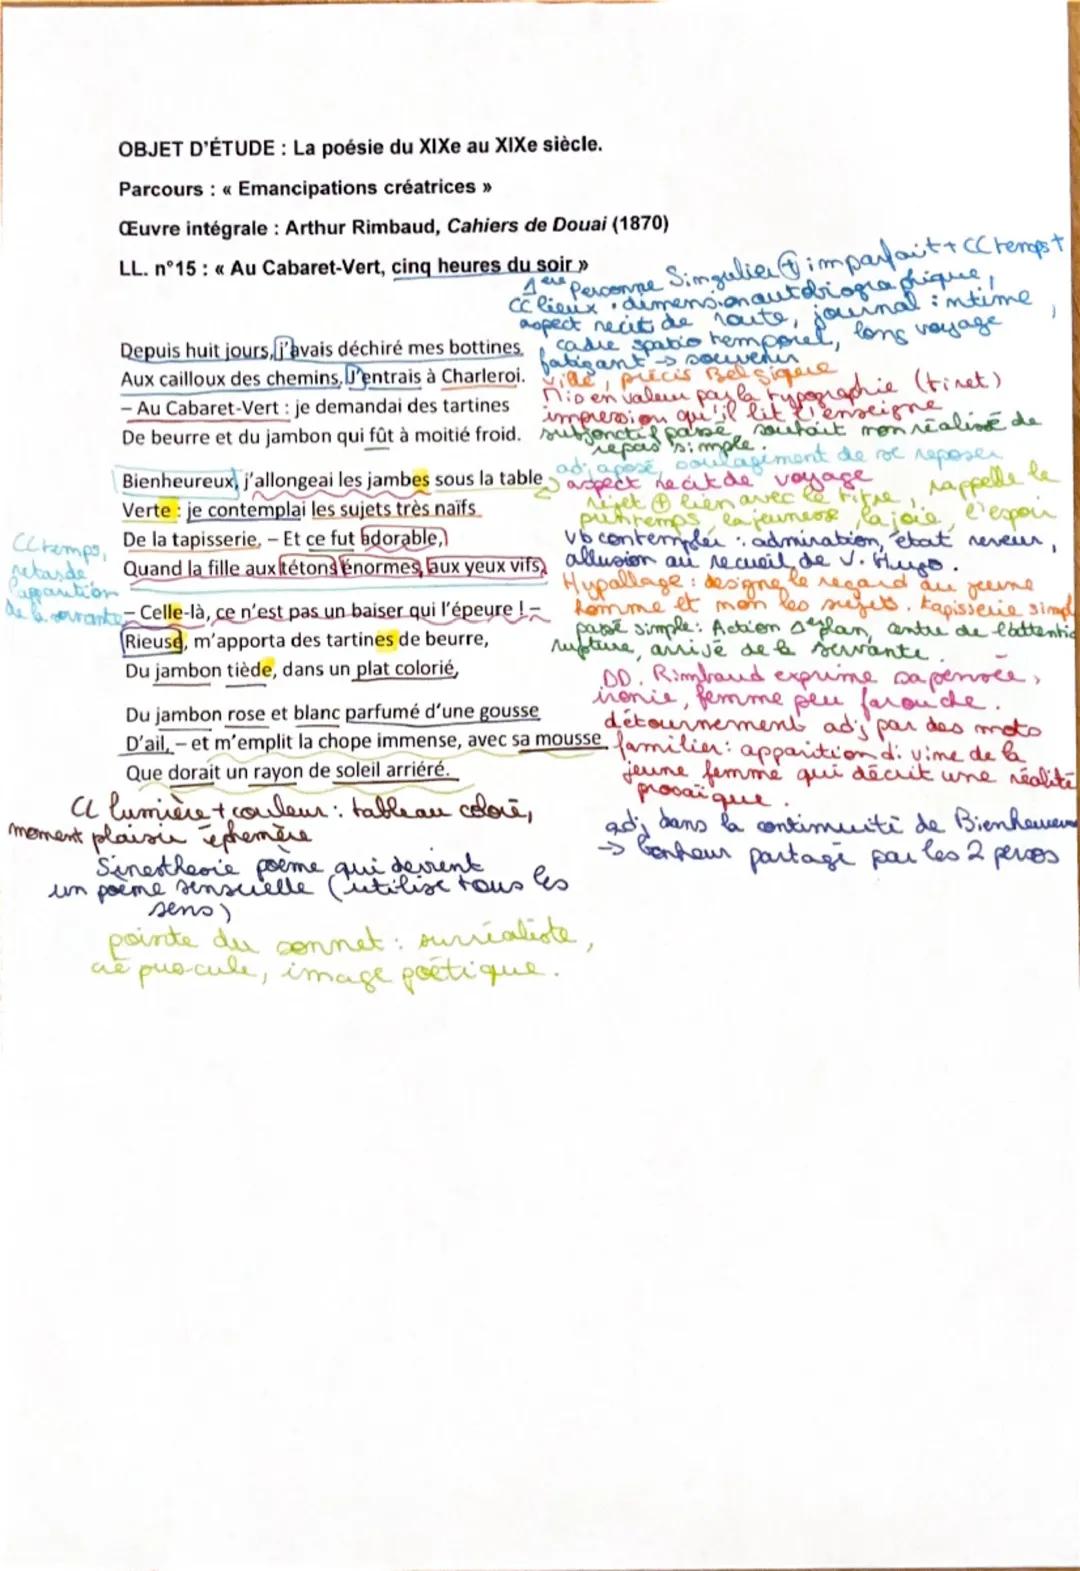 OBJET D'ÉTUDE : La poésie du XIXe au XIXe siècle.
Parcours : « Emancipations créatrices »
Œuvre intégrale : Arthur Rimbaud, Cahiers de Douai (1870)
LL. n°15 : « Au Cabaret-Vert, cinq heures du soir »
1ère Personne Singulier + imparfait + CC temps +
CC lieux : dimension autobiographique,
aspect récit de route, journal intime,
cadre spatio temporel, long voyage
fatigant → souvenir
Depuis huit jours, j'avais déchiré mes bottines
Aux cailloux des chemins. J'entrais à Charleroi.
ville, précis Belgique
– Au Cabaret-Vert : je demandai des tartines
Mis en valeur par la typographie (tiret)
impression qu'il lit l'enseigne
De beurre et du jambon qui fût à moitié froid.
subjonctif passé souhait non réalisé de
repas simple.
Bienheureux, j'allongeai les jambes sous la table
adj aposé, soulagement de se reposer
aspect récit de voyage
Verte : je contemplai les sujets très naïfs
rejet + lien avec le titre, rappelle le
printemps, la jeunesse, la joie, l'espoir
De la tapisserie, – Et ce fut adorable,
Vb contempler : admiration, état reveur,
allusion au recueil de V. Hugo.
CC temps,
retarde
l'apparution
de la servante
Quand la fille aux tétons énormes, aux yeux vifs,
Hypallage : designe le regard du jeune
homme et non les sujets. tapisserie simpl
– Celle-là, ce n'est pas un baiser qui l'épeure ! –
passé simple : Action 1er plan, centre de l'attentio
rupture, arrivé de la servante.
Rieuse, m'apporta des tartines de beurre,
Du jambon tiède, dans un plat colorié,
DD. Rimbaud exprime sa pensée,
ironie, femme peu farouche.
Du jambon rose et blanc parfumé d'une gousse
détournement adj par des mots
D'ail, – et m'emplit la chope immense, avec sa mousse
familier : apparition divine de la
jeune femme qui décrit une réalité
prosaïque.
Que dorait un rayon de soleil arriéré.
CL lumière + couleur : tableau coloré,
moment plaisir éphemère
adj dans la continuité de Bienheureu
→ bonheur partagé par les 2 persos
Sinesthesie poème qui devient
un poème sensuelle (utilise tous les
sens)
pointe du sonnet : surréaliste,
crépuscule, image poétique.